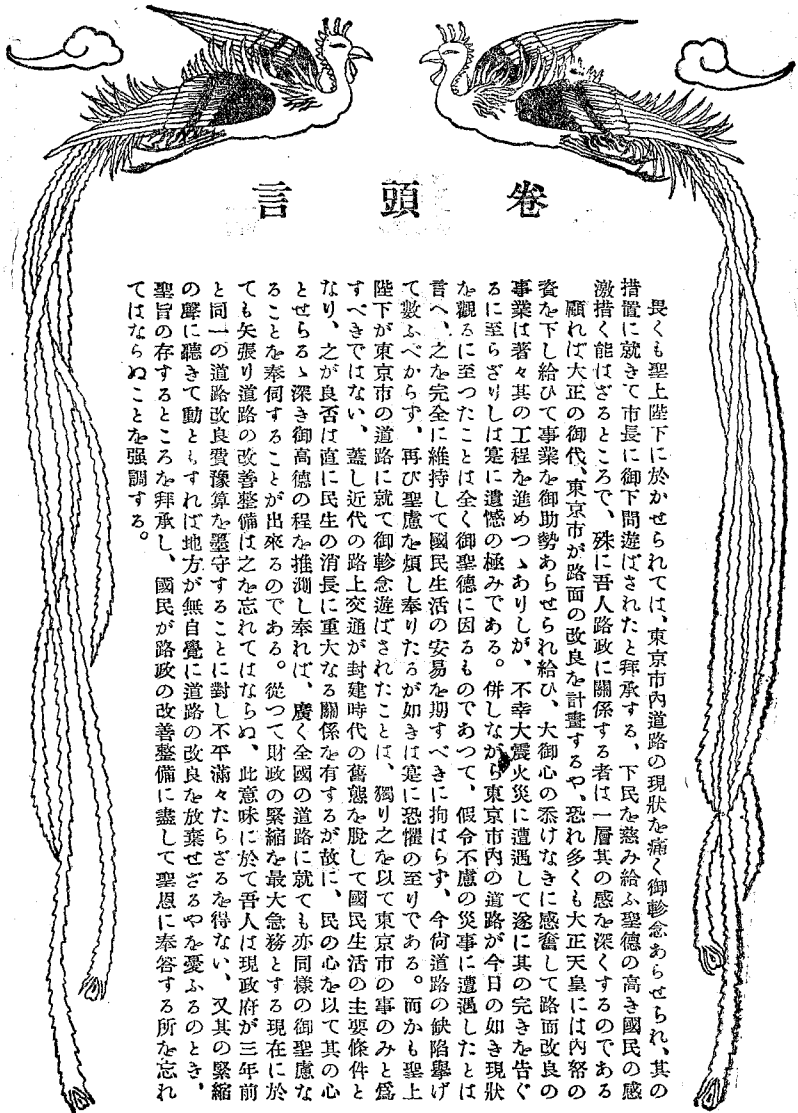 卷頭言
畏くも聖上陛下に於かせられては、東京市內道路の現狀を痛く御軫念あらせられ、其の
措置に就きて市長に御下問遊ばされたと拜承する、下民を慈み給ふ聖德の高き國民の感
激措く能はざるところで、殊に吾人路政に關係する者は一層其の感を深くするのである
顧れば大正の御代、東京市が路面の改良を計畫するや、恐れ多くも大正天皇には內帑の
資を下し給ひて事業を御助勢あらせられ給ひ、大御心の忝けなきに感奮して路面改良の
事業は著々其の工程を進めつゝありしが、不幸大震火災に遭遇して遂に其の完きを吿ぐ
るに至らざりしは寔に遺憾の極みである。併しながら東京市內の道路が今日の如き現狀
を觀るに至つたことは全く御聖德に因るものであつて、假令不慮の災事に遭遇したとは
言へ、之を完全に維持して國民生活の安易を期すべきに拘はらず、今尙道路の缺陷擧げ
て數ふべからず、再び聖慮を煩し奉りたるが如きは寔に恐懼の至りである。而かも聖上
陛下が東京市の道路に就て御軫念遊ばされたことは、獨り之を以て東京市の事のみと爲
すべきではない、蓋し近代の路上交通が封建時代の舊態を脫して國民生活の主要條件と
なり、之が良否は直に民生の消長に重大なる關係を有するが故に、民の心を以て其の心
とせらるゝ深き御高德の程を推測し奉れば、廣く全國の道路に就ても亦同樣の御聖慮な
ることを奉伺することが出來るのである。從つて財政の緊縮を最大急務とする現在に於
ても矢張り道路の改善整備は之を忘れてはならぬ、此意味に於て吾人は現政府が三年前
と同一の道路改良費豫算を墨守することに對し不平滿々たらざるを得ない、又其の緊縮
の聲に聽きて動ともすれば地方が無自覺に道路の改良を放棄せざるやを憂ふるのとき、
聖旨の存するところを拜承し、國民が路政の改善整備に盡して聖恩に奉答する所を忘れ
てはならぬことを强調する。